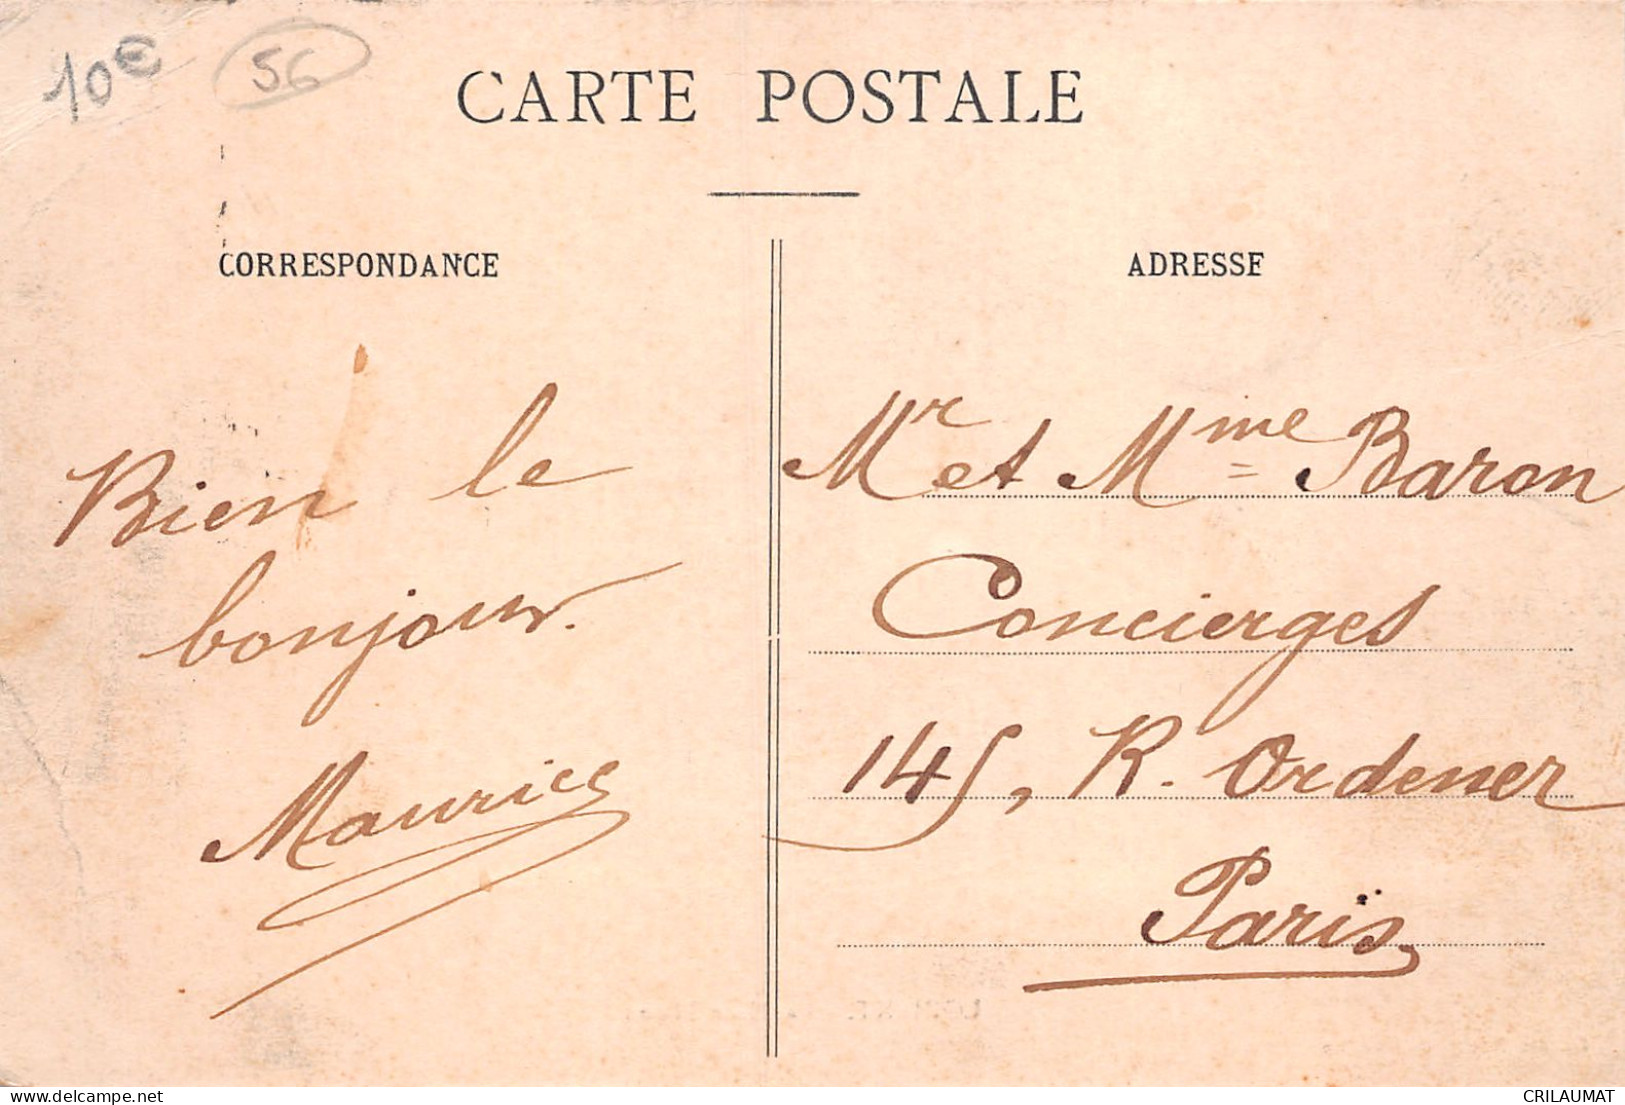 10€
56
CARTE POSTALE
CORRESPONDANCE
Bien le
bonjour.
Maurice
ADRESSE
Mr et Mme Baron
Concierges
145, R. Ordener
Paris
delcampe.net
CRILAUMAT